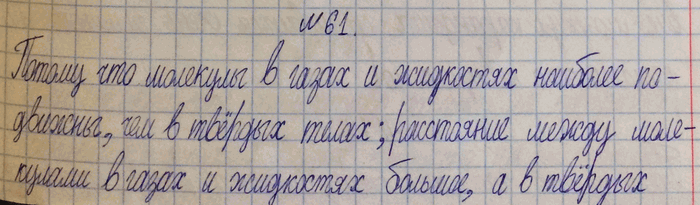 №61.
Потому что молекулы в газах и жидкостях наиболее по-
движны, чем в твёрдых телах; расстояние между моле-
кулами в газах и жидкостях большое, а в твёрдых